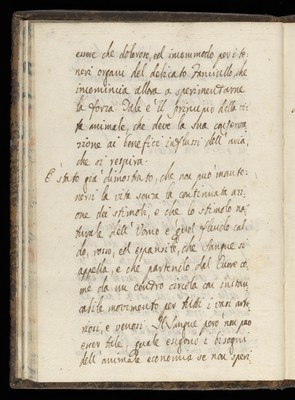 essere che doloroso, ed incommodo per i te-
neri organi del delicato Fanciullo, che
incomincia allora a sperimentarne
la forza. Tale è il principio della vi-
ta animale, che deve la sua conserva-
zione ai benefici influssi dell'aria,
che si respira.
È stato già dimostrato, che non può mante-
nersi la vita senza la continuata azi-
one dei stimoli, e che lo stimolo na-
turale dell'Uomo è quel fluido cal-
do, rosso, ed espansile, che Sangue si
appella, e che partendo dal Cuore co-
me da un centro circola con instan-
cabile movimento per tutti i vasi arte-
riosi, e venosi. Il Sangue però non può
esser tale, quale esigono i bisogni
dell'animale economia se non speri-